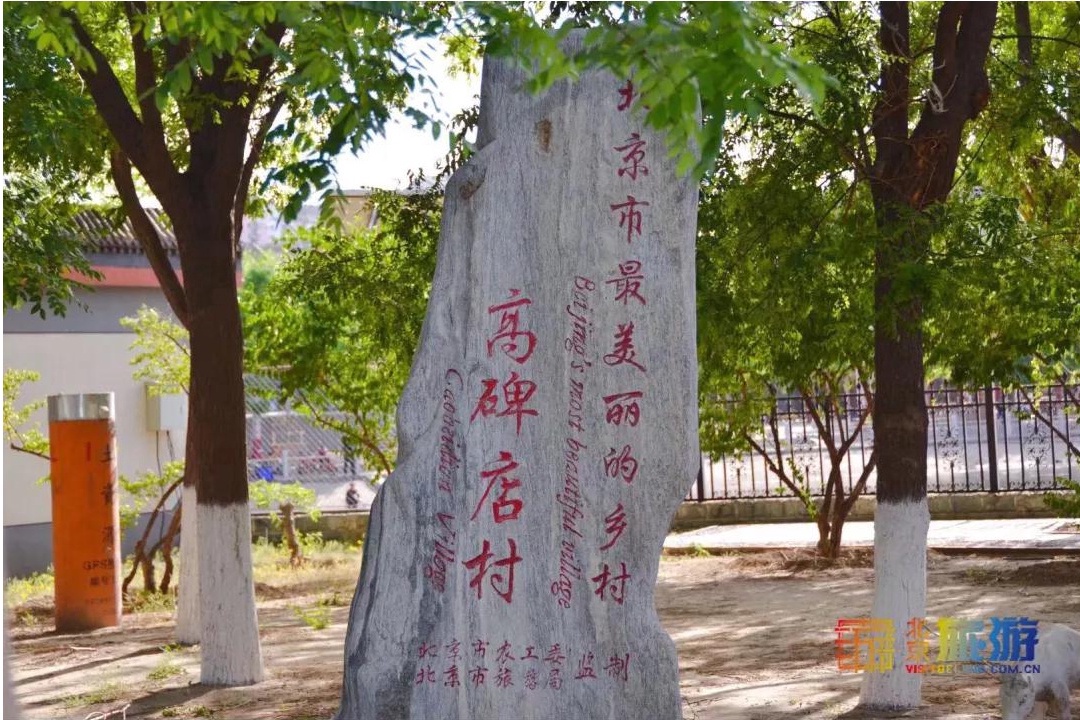 北京市最美丽的乡村
Beijing's most beautiful village
高碑店村
Gaobeidian Village
北京市农工委
北京市旅游局 监制
北京旅游
VISITBEIJING.COM.CN